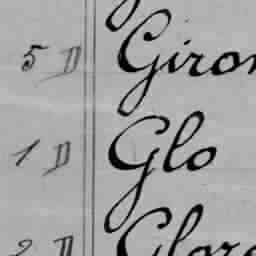 5 D Giron
1 D Glo
2 D Glor